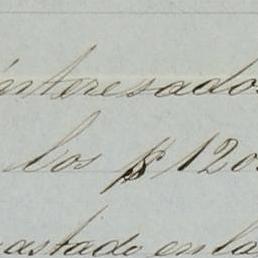 interesados
los $ 120
gastado en la